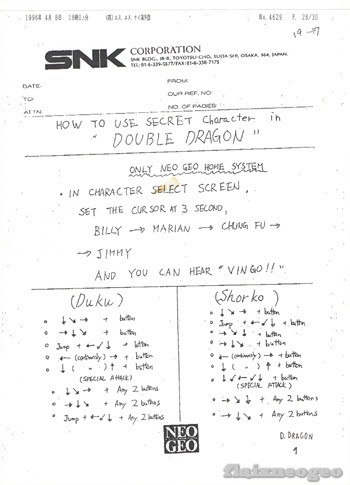 1996年 4月 8日 18時02分
No. 4629 P. 28/30
SNK CORPORATION
SNK BLDG., 18-8, TOYOTSU-CHO, SUITA-SHI, OSAKA, 564, JAPAN.
TEL: 81-6-339-5577/FAX: 81-6-338-7175
DATE:
FROM:
TO:
OUR REF. NO:
ATTN:
NO. OF PAGES:
HOW TO USE SECRET Character in
" DOUBLE DRAGON "
ONLY NEO GEO HOME SYSTEM
・ IN CHARACTER SELECT SCREEN,
SET THE CURSOR AT 3 SECOND,
BILLY → MARIAN → CHUNG FU →
→ JIMMY
AND YOU CAN HEAR "VINGO!!".
(Duku)
o ↓ ↘ → + button
o → ↓ ↘ + button
o Jump + ← ↙ ↓ + button
o ← (continuously) → + button
o ↓ ( 〃 ) ↑ + button
(SPECIAL ATTACK)
o ↓ ↘ → + Any 2 buttons
o → ↓ ↘ + Any 2 buttons
o Jump + ← ↙ ↓ + Any 2 buttons
(Shorko)
o ↓ ↘ → + button
o Jump + ← ↙ ↓ + button
o → ↘ ↓ + button
o → ↓ ↘ + button
o ← (continuously) → + button
o ↓ ( 〃 ) ↑ + button
o ↓ ↙ ← ↙ ↓ + button
(SPECIAL ATACK)
o → ↘ ↓ + Any 2 buttons
o → ↓ ↘ + Any 2 buttons
NEO
GEO
D. DRAGON
flaizneogeo